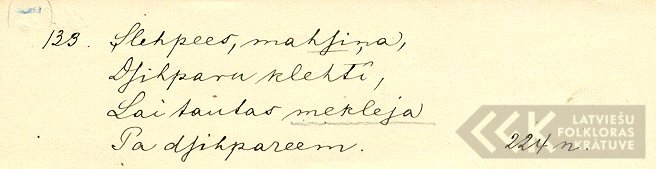 133. Slehpees, mahsiņa,
Dsihparu klehtî,
Lai tautas mekleja
Pa dsihpareem. 224 n.
LATVIEŠU
FOLKLORAS
KRĀTUVE